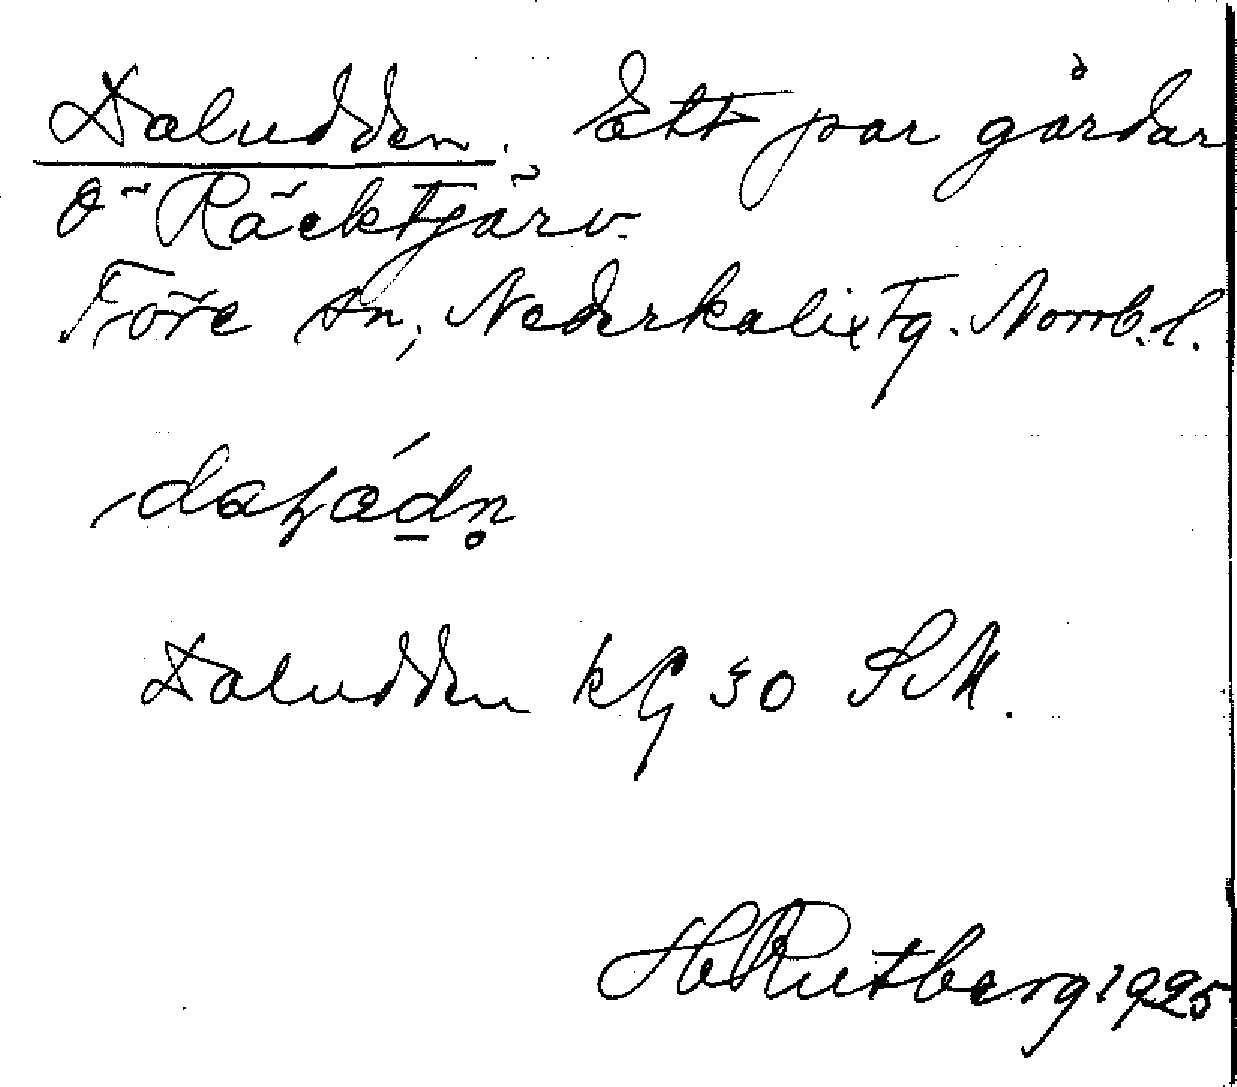 Daludden. Ett par gårdar
å Räcktjärv.
Töre sn, Nederkalix tg. Norrb. l.
Daludden kG 30 SM.
H Rutberg 1925